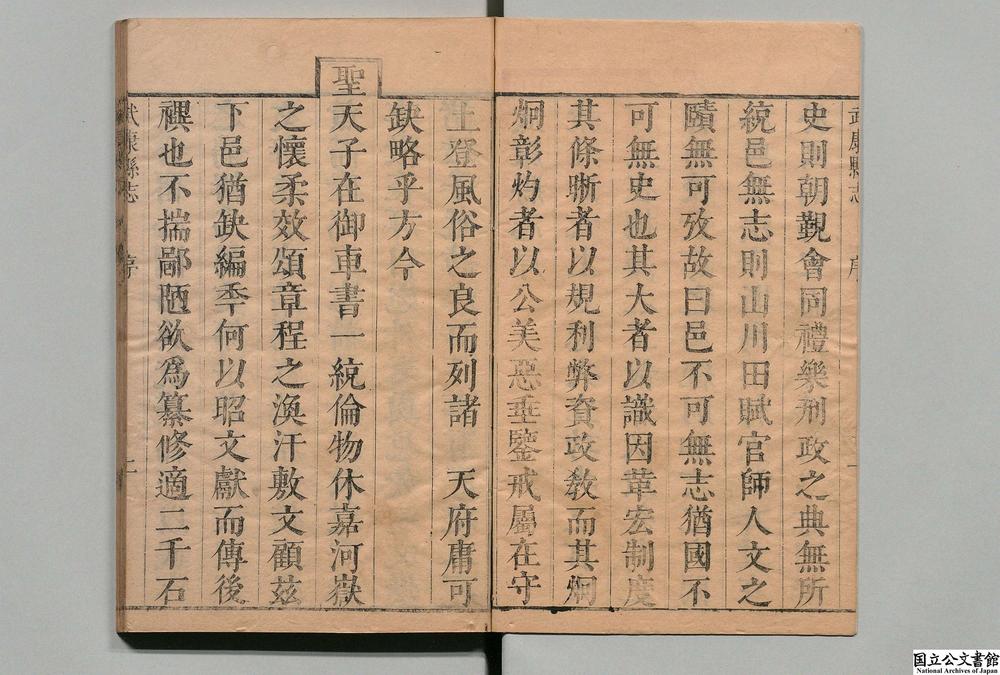 史則朝覲會同禮樂刑政之典無所
統邑無志則山川田賦官師人文之
賾無可攷故曰邑不可無志猶國不
可無史也其大者以識因革宏制度
其條晰者以規利弊資政教而其炯
炯彰灼者以公美惡垂鑒戒屬在守
土登風俗之良而列諸 天府庸可
缺略乎方今
聖天子在御車書一統倫物休嘉河嶽
之懷柔效頌章程之渙汗敷文顧茲
下邑猶缺編秊何以昭文獻而傳後
禩也不揣鄙陋欲為纂修適二千石
武康縣志 序
武康縣志 序
国立公文書館
National Archives of Japan